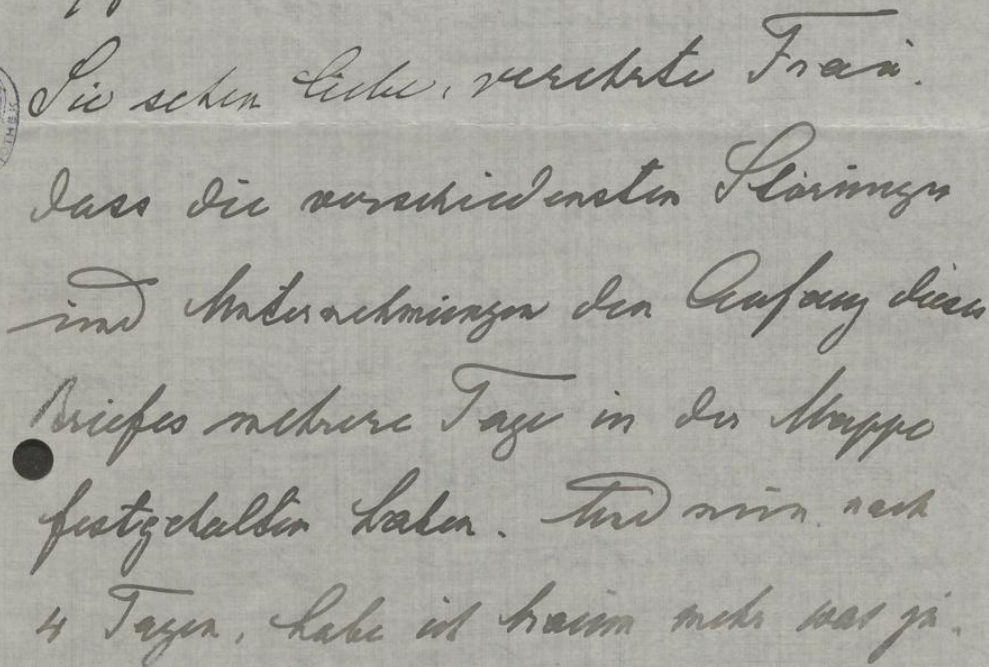 Sie sehen liebe, verehrte Frau.
dass die verschiedensten Störungen
und Unternehmungen den Anfang dieses
Briefes mehrere Tage in der Mappe
festgehalten haben. Und nun nach
4 Tagen, habe ich kaum mehr was zu